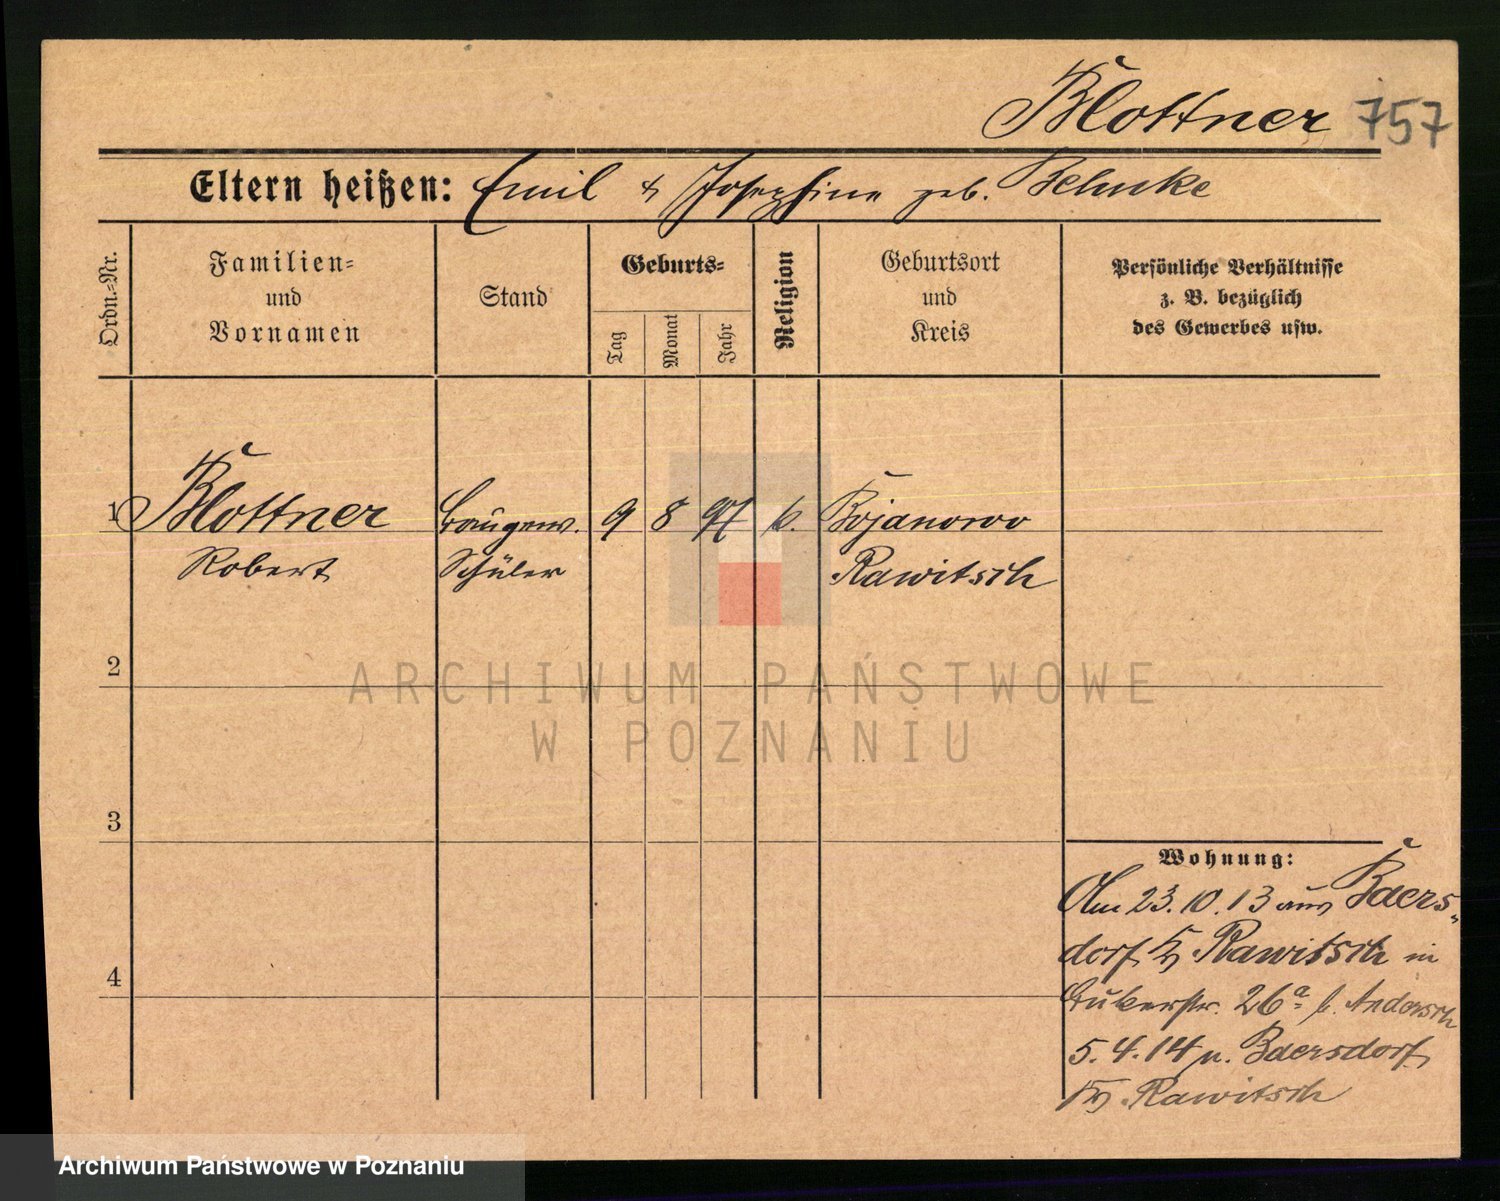 Blottner 757
Eltern heißen: Emil & Josephine geb. Behnke
Ordn.-Nr.
Familien-
und
Vornamen
Stand
Geburts-
Tag
Monat
Jahr
Religion
Geburtsort
und
Kreis
Persönliche Verhältnisse
z. B. bezüglich
des Gewerbes usw.
1 Blottner Baugew. 9 8 97 Bojanowo
Robert Schüler Rawitsch
2
ARCHIWUM PAŃSTWOWE
W POZNANIU
3
Wohnung:
Am 23.10.13 aus Baers-
dorf Kr Rawitsch in
26a b.
4
5.4.14 n. Baersdorf
Kr Rawitsch
Archiwum Państwowe w Poznaniu